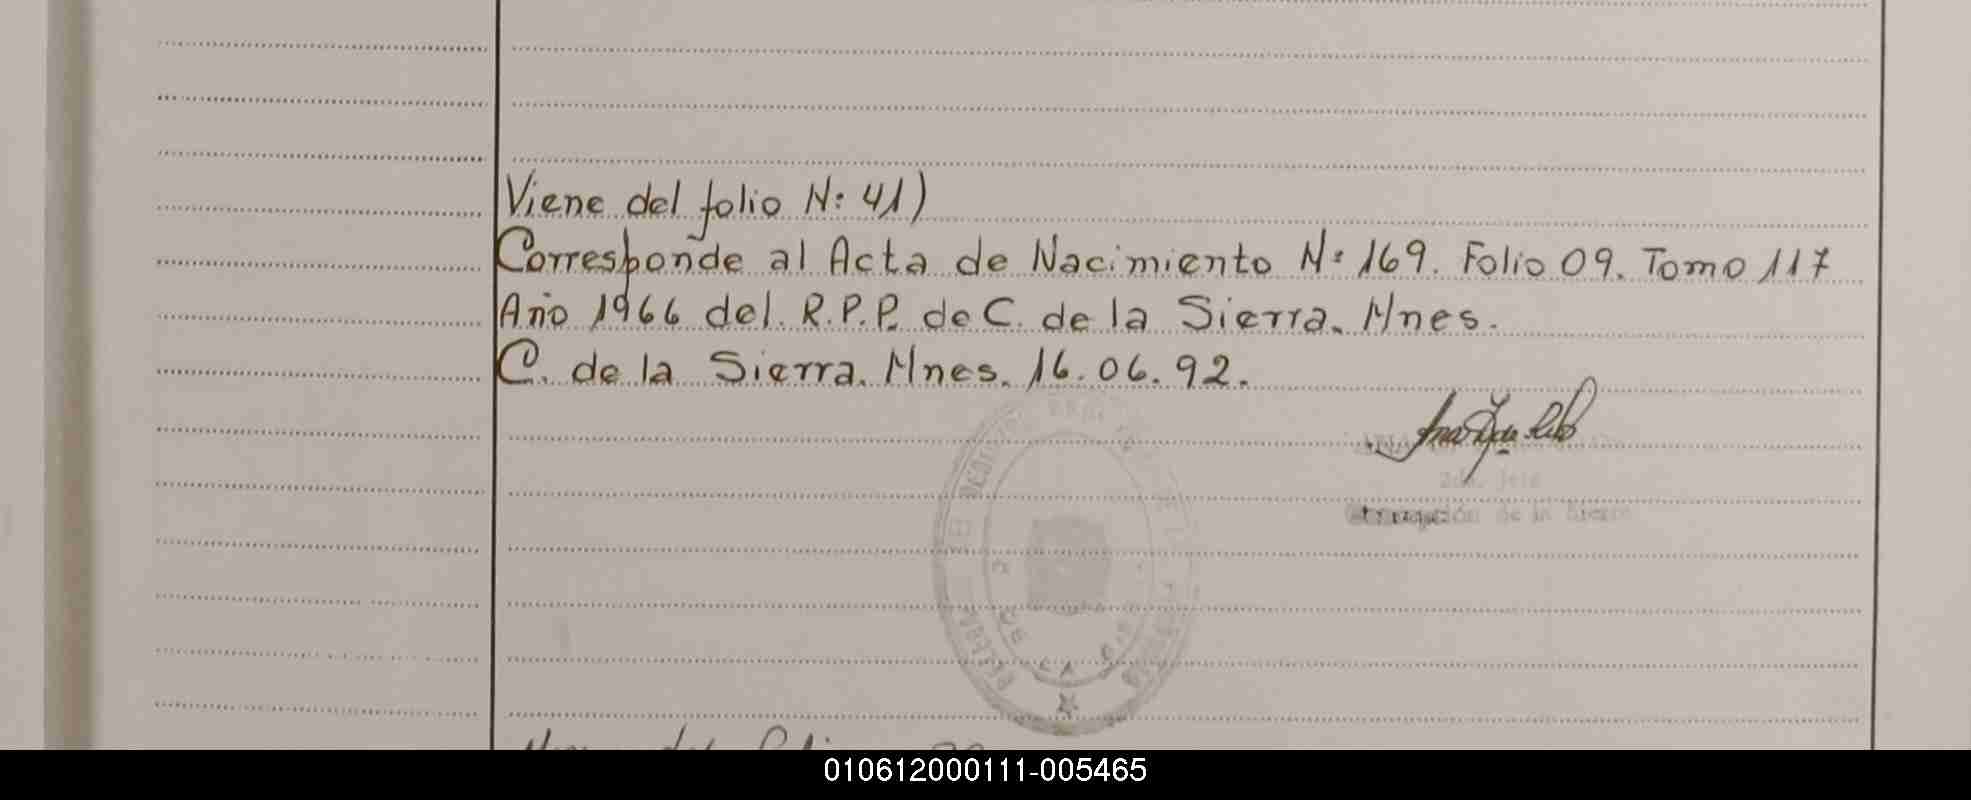 Viene del folio N: 41)
Corresponde al Acta de Nacimiento N: 169. Folio 09. Tomo 117
Año 1966 del R.P.P. de C. de la Sierra. Mnes.
C. de la Sierra. Mnes. 16.06.92.
2do. Jefe
Concepción de la Sierra
010612000111-005465